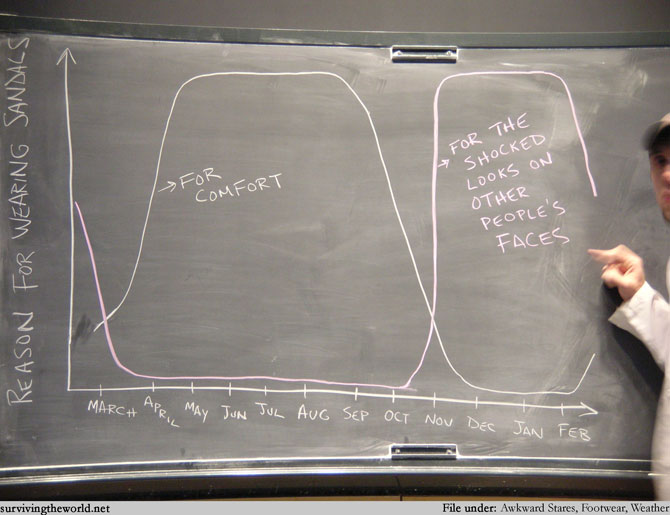 REASON FOR WEARING SANDALS
FOR
COMFORT
FOR THE
SHOCKED
LOOKS ON
OTHER
PEOPLE'S
FACES
MARCH APRIL MAY JUN JUL AUG SEP OCT NOV DEC JAN FEB
survivingtheworld.net
File under: Awkward Stares, Footwear, Weather